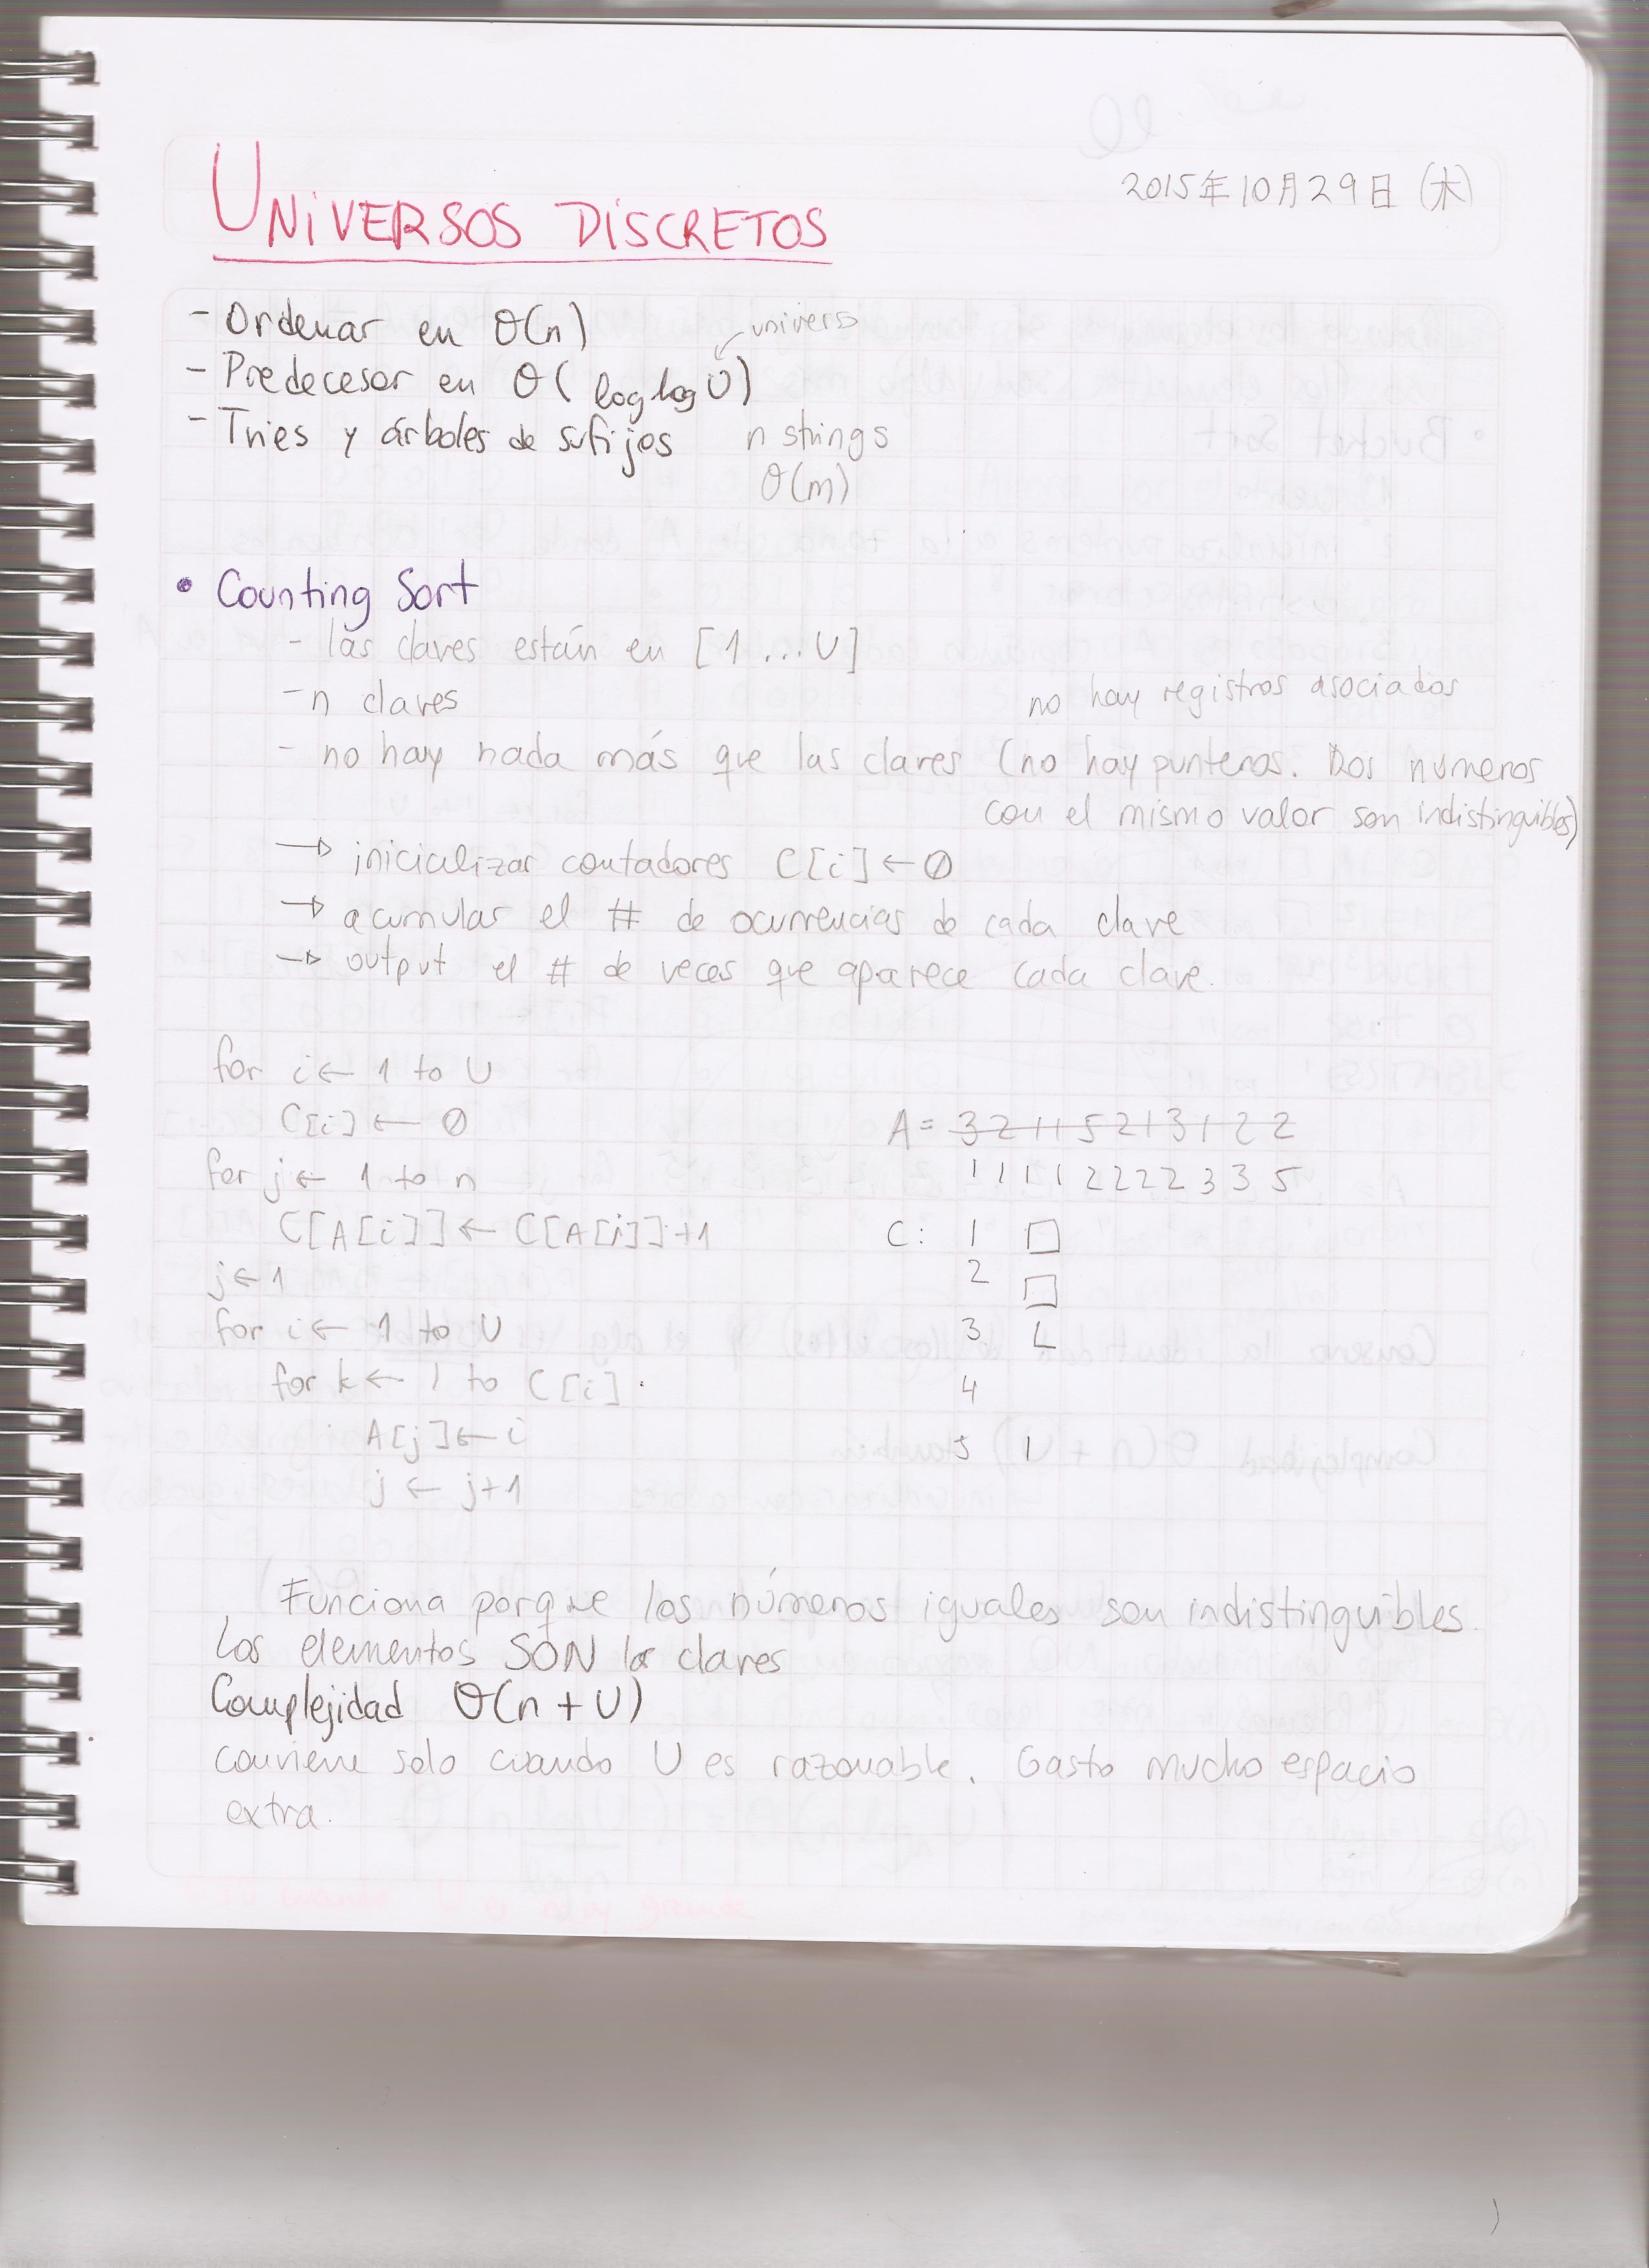 2015年10月29日 (木)
UNIVERSOS DISCRETOS
- Ordenar en Θ(n)
universo
- Predecesor en Θ(log log U)
- Tries y árboles de sufijos n strings
Θ(m)
• Counting Sort
- las claves están en [1...U]
- n claves
no hay registros asociados
- no hay nada más que las claves (no hay punteros. Dos números
con el mismo valor son indistinguibles)
→ inicializar contadores C[i] ← 0
→ acumular el # de ocurrencias de cada clave
→ output el # de veces que aparece cada clave.
for i ← 1 to U
C[i] ← 0
for j ← 1 to n
C[A[i]] ← C[A[i]]+1
j ← 1
for i ← 1 to U
for k ← 1 to C[i]
A[j] ← i
j ← j+1
A = 3 2 1 1 5 2 1 3 1 2 2
1 1 1 1 2 2 2 2 3 3 5
C: 1 □
2 □
3 L
4
5 1
Funciona porque los números iguales son indistinguibles.
Los elementos SON las claves
Complejidad Θ(n + U)
conviene solo cuando U es razonable. Gasto mucho espacio
extra.